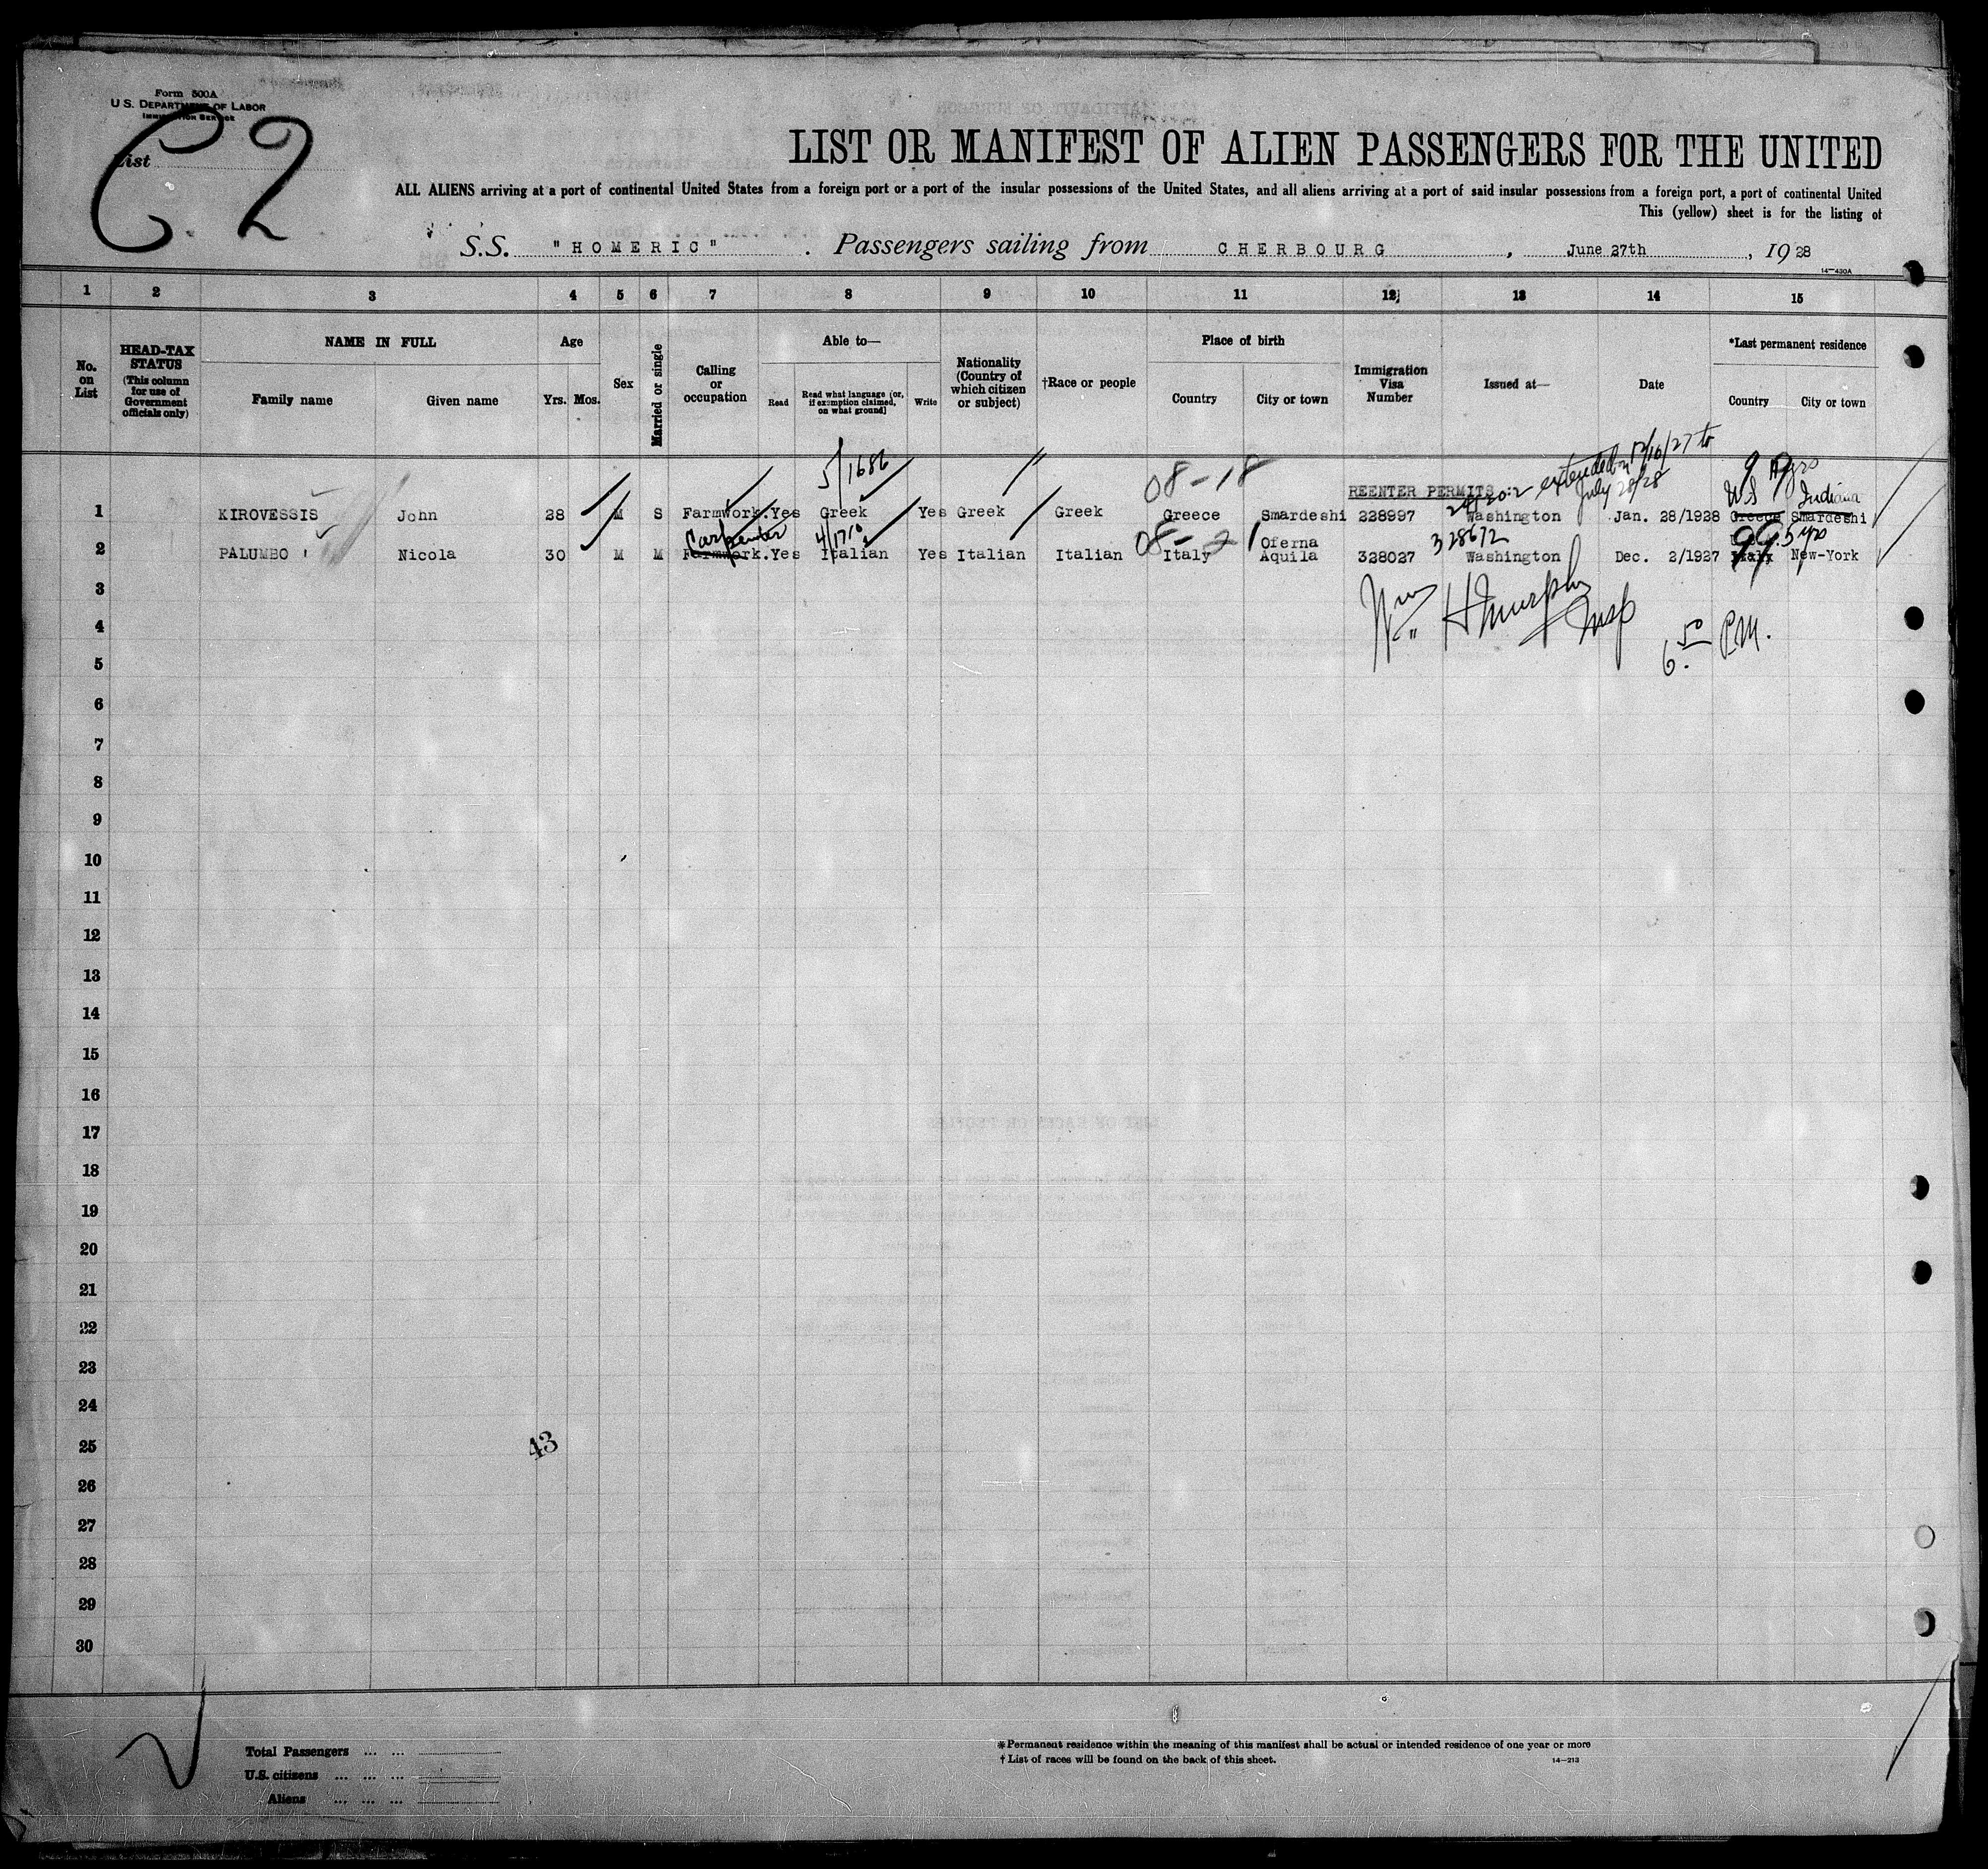 Form 500A
U.S. DEPARTMENT OF LABOR
IMMIGRATION SERVICE
List
C. 2
LIST OR MANIFEST OF ALIEN PASSENGERS FOR THE UNITED
ALL ALIENS arriving at a port of continental United States from a foreign port or a port of the insular possessions of the United States, and all aliens arriving at a port of said insular possessions from a foreign port, a port of continental United
This (yellow) sheet is for the listing of
S.S. "HOMERIC". Passengers sailing from CHERBOURG, June 27th, 1928
14—430A
1 2 3 4 5 6 7 8 9 10 11 12 13 14 15
No. on List
HEAD-TAX STATUS (This column for use of Government officials only)
NAME IN FULL
Family name Given name
Age
Yrs. Mos.
Sex
Married or single
Calling or occupation
Able to—
Read
Read what language (or, if exemption claimed, on what ground)
Write
Nationality (Country of which citizen or subject)
†Race or people
Place of birth
Country City or town
Immigration Visa Number
Issued at—
Date
*Last permanent residence
Country City or town
5/1686
08-18
extended on 12/16/27 to
July 28/28
REENTER PERMITS
U.S. Indiana
1 KIROVESSIS John 28 M S Farmwork. Yes Greek Yes Greek Greek Greece Smardeshi 228997 Washington Jan. 28/1928 Greece Smardeshi
Carpenter
08-21
Oferna
328672
5 yrs
2 PALUMBO Nicola 30 M M Farmwork. Yes Italian Yes Italian Italian Italy Aquila 328027 Washington Dec. 2/1927 New-York
3
Wm H Murphy
Insp
4
6.50 P.M.
5
6
7
8
9
10
11
12
13
14
15
16
17
18
19
20
21
22
23
24
25
43
26
27
28
29
30
Total Passengers ... ...
U.S. citizens ... ... ...
Aliens ... ... ...
*Permanent residence within the meaning of this manifest shall be actual or intended residence of one year or more
†List of races will be found on the back of this sheet.
14—213